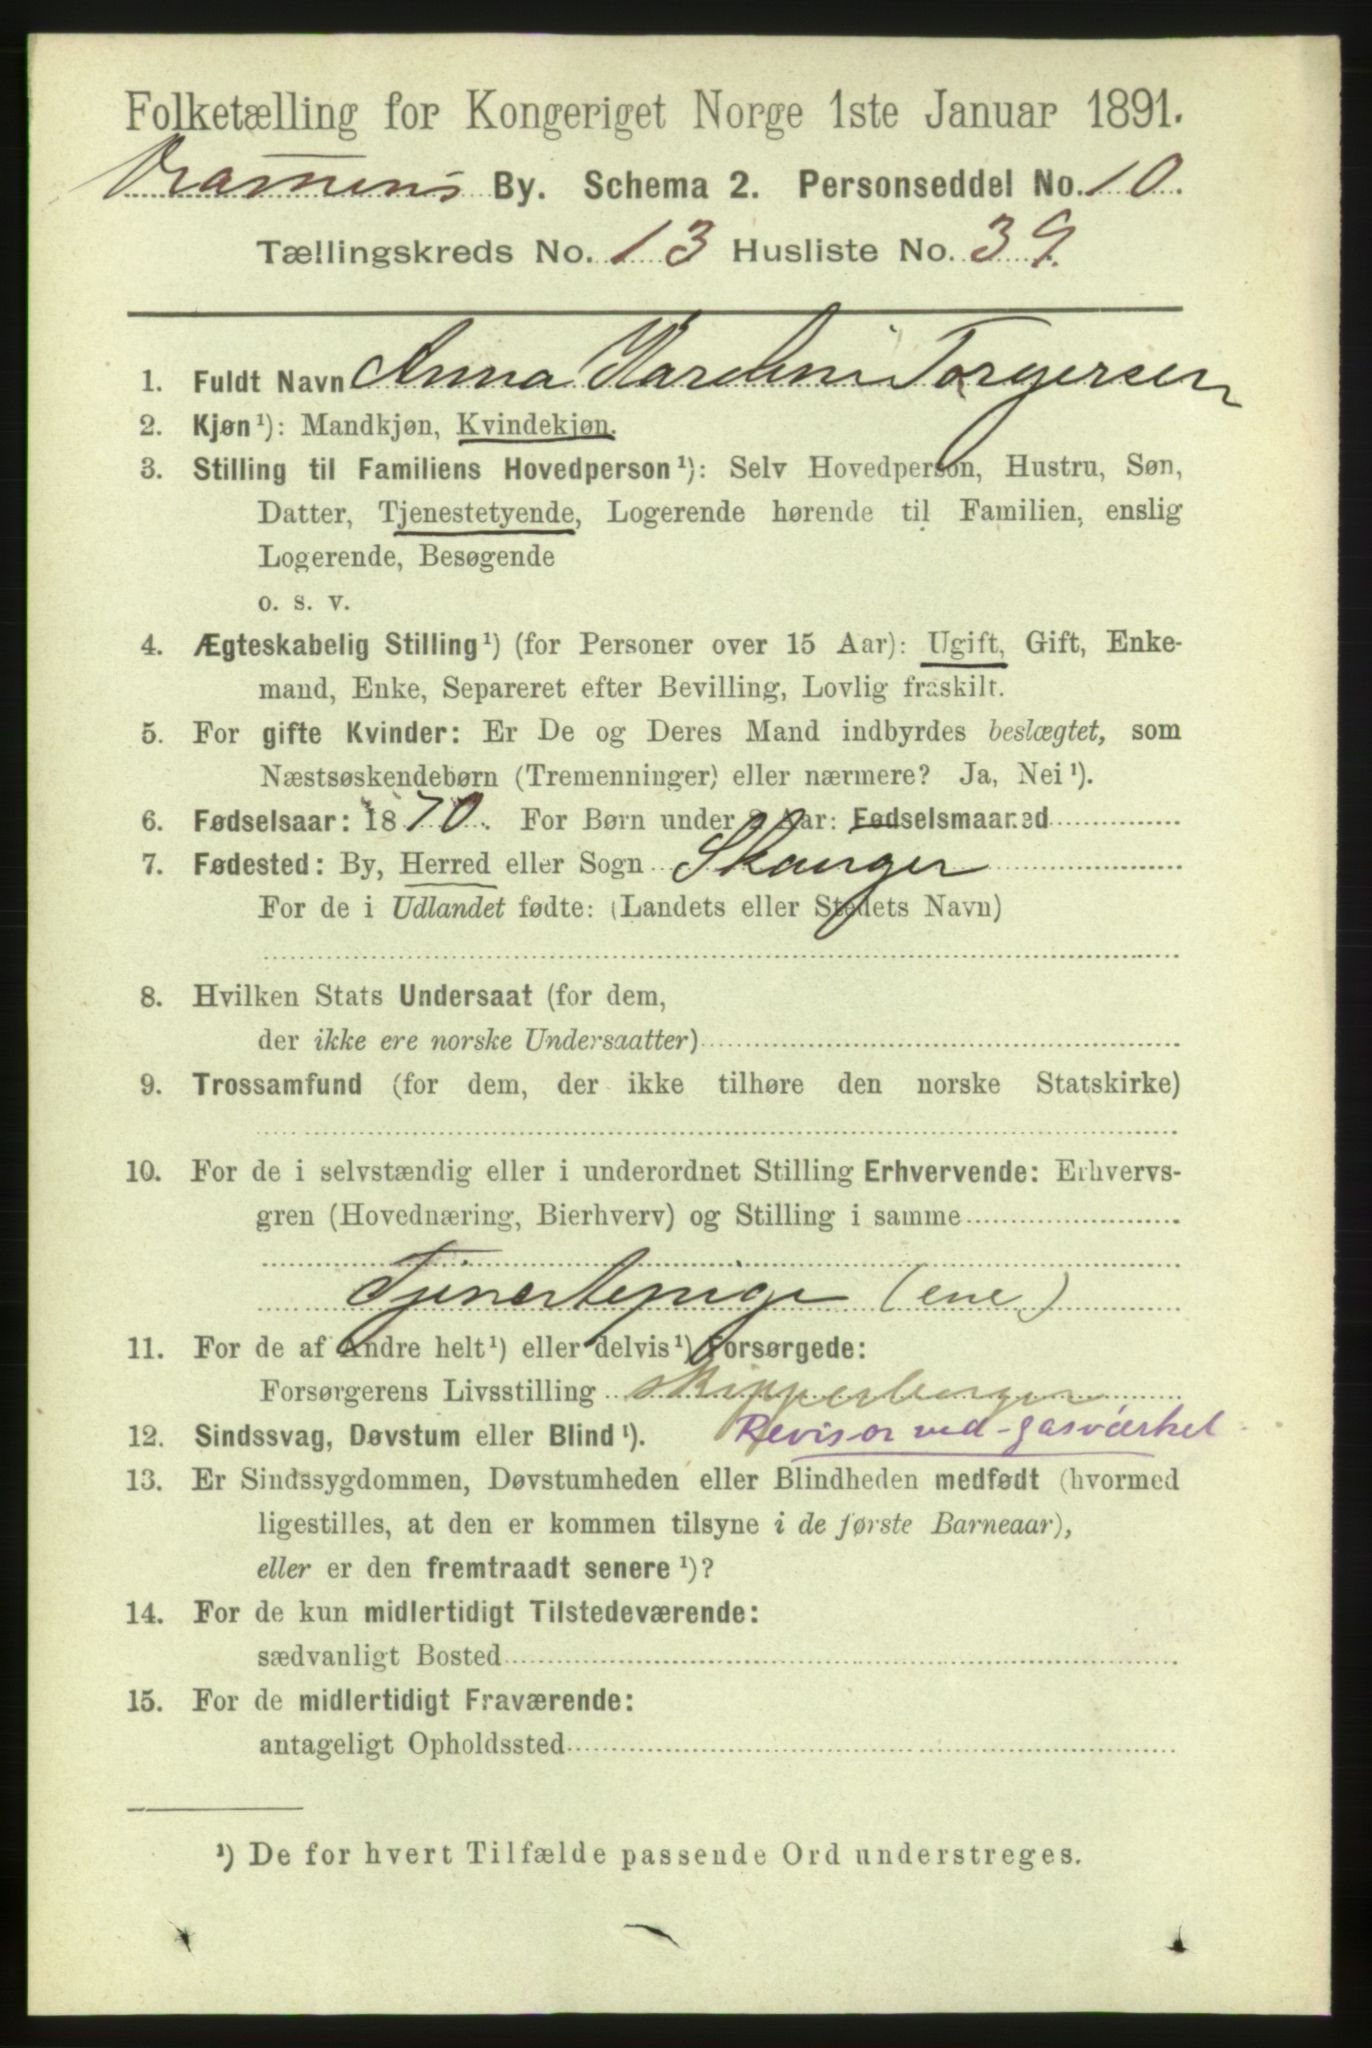 Folketælling for Kongeriget Norge 1ste Januar 1891.
Dramens By. Schema 2. Personseddel No. 10.
Tællingskreds No. 13 Husliste No. 39.
1. Fuldt Navn Anna Torgersen
2. Kjøn¹): Mandkjøn, Kvindekjøn.
3. Stilling til Familiens Hovedperson¹): Selv Hovedperson, Hustru, Søn,
Datter, Tjenestetyende, Logerende hørende til Familien, enslig
Logerende, Besøgende
o. s. v.
4. Ægteskabelig Stilling¹) (for Personer over 15 Aar): Ugift, Gift, Enke-
mand, Enke, Separeret efter Bevilling, Lovlig fraskilt.
5. For gifte Kvinder: Er De og Deres Mand indbyrdes beslægtet, som
Næstsøskendebørn (Tremenninger) eller nærmere? Ja, Nei¹).
6. Fødselsaar: 1870. For Børn under 2 Aar: Fødselsmaaned
7. Fødested: By, Herred eller Sogn Skauger
For de i Udlandet fødte: (Landets eller Stedets Navn)
8. Hvilken Stats Undersaat (for dem,
der ikke ere norske Undersaatter)
9. Trossamfund (for dem, der ikke tilhøre den norske Statskirke)
10. For de i selvstændig eller i underordnet Stilling Erhvervende: Erhvervs-
gren (Hovednæring, Bierhverv) og Stilling i samme
Tjenestepige (ene)
11. For de af Andre helt¹) eller delvis¹) Forsørgede:
Forsørgerens Livsstilling
12. Sindssvag, Døvstum eller Blind¹). Revisor ved gasværket
13. Er Sindssygdommen, Døvstumheden eller Blindheden medfødt (hvormed
ligestilles, at den er kommen tilsyne i de første Barneaar),
eller er den fremtraadt senere¹)?
14. For de kun midlertidigt Tilstedeværende:
sædvanligt Bosted
15. For de midlertidigt Fraværende:
antageligt Opholdssted
¹) De for hvert Tilfælde passende Ord understreges.